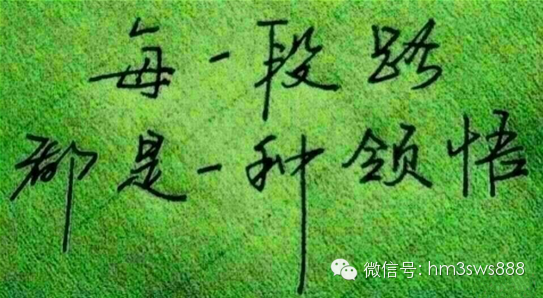 每一段路
都是一种领悟
微信号: hm3sws888